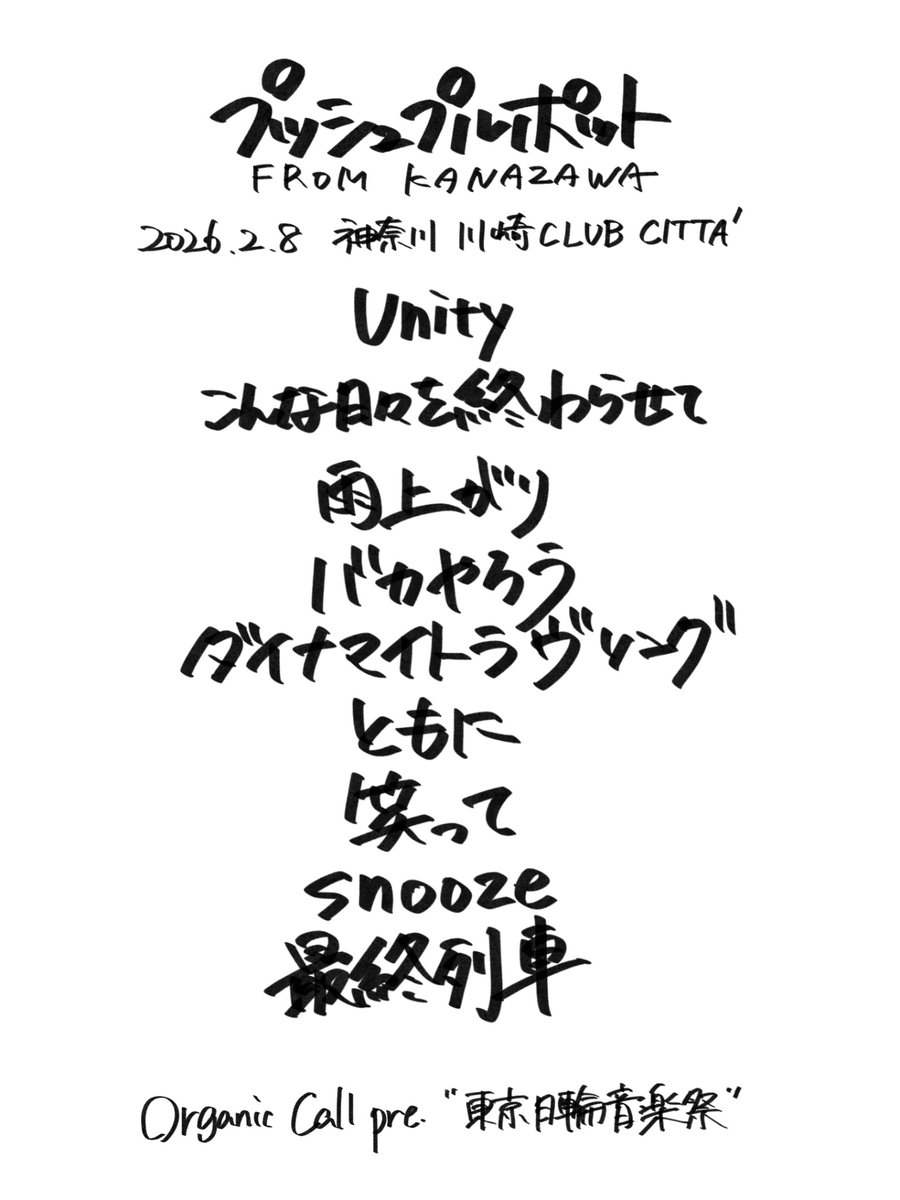 プッシュプルポット
FROM KANAZAWA
2026.2.8 神奈川 川崎CLUB CITTA'
Unity
こんな日々を終わらせて
雨上がり
バカやろう
ダイナマイトラヴソング
ともに
笑って
snooze
最終列車
Organic Call pre. "東京日輪音楽祭"